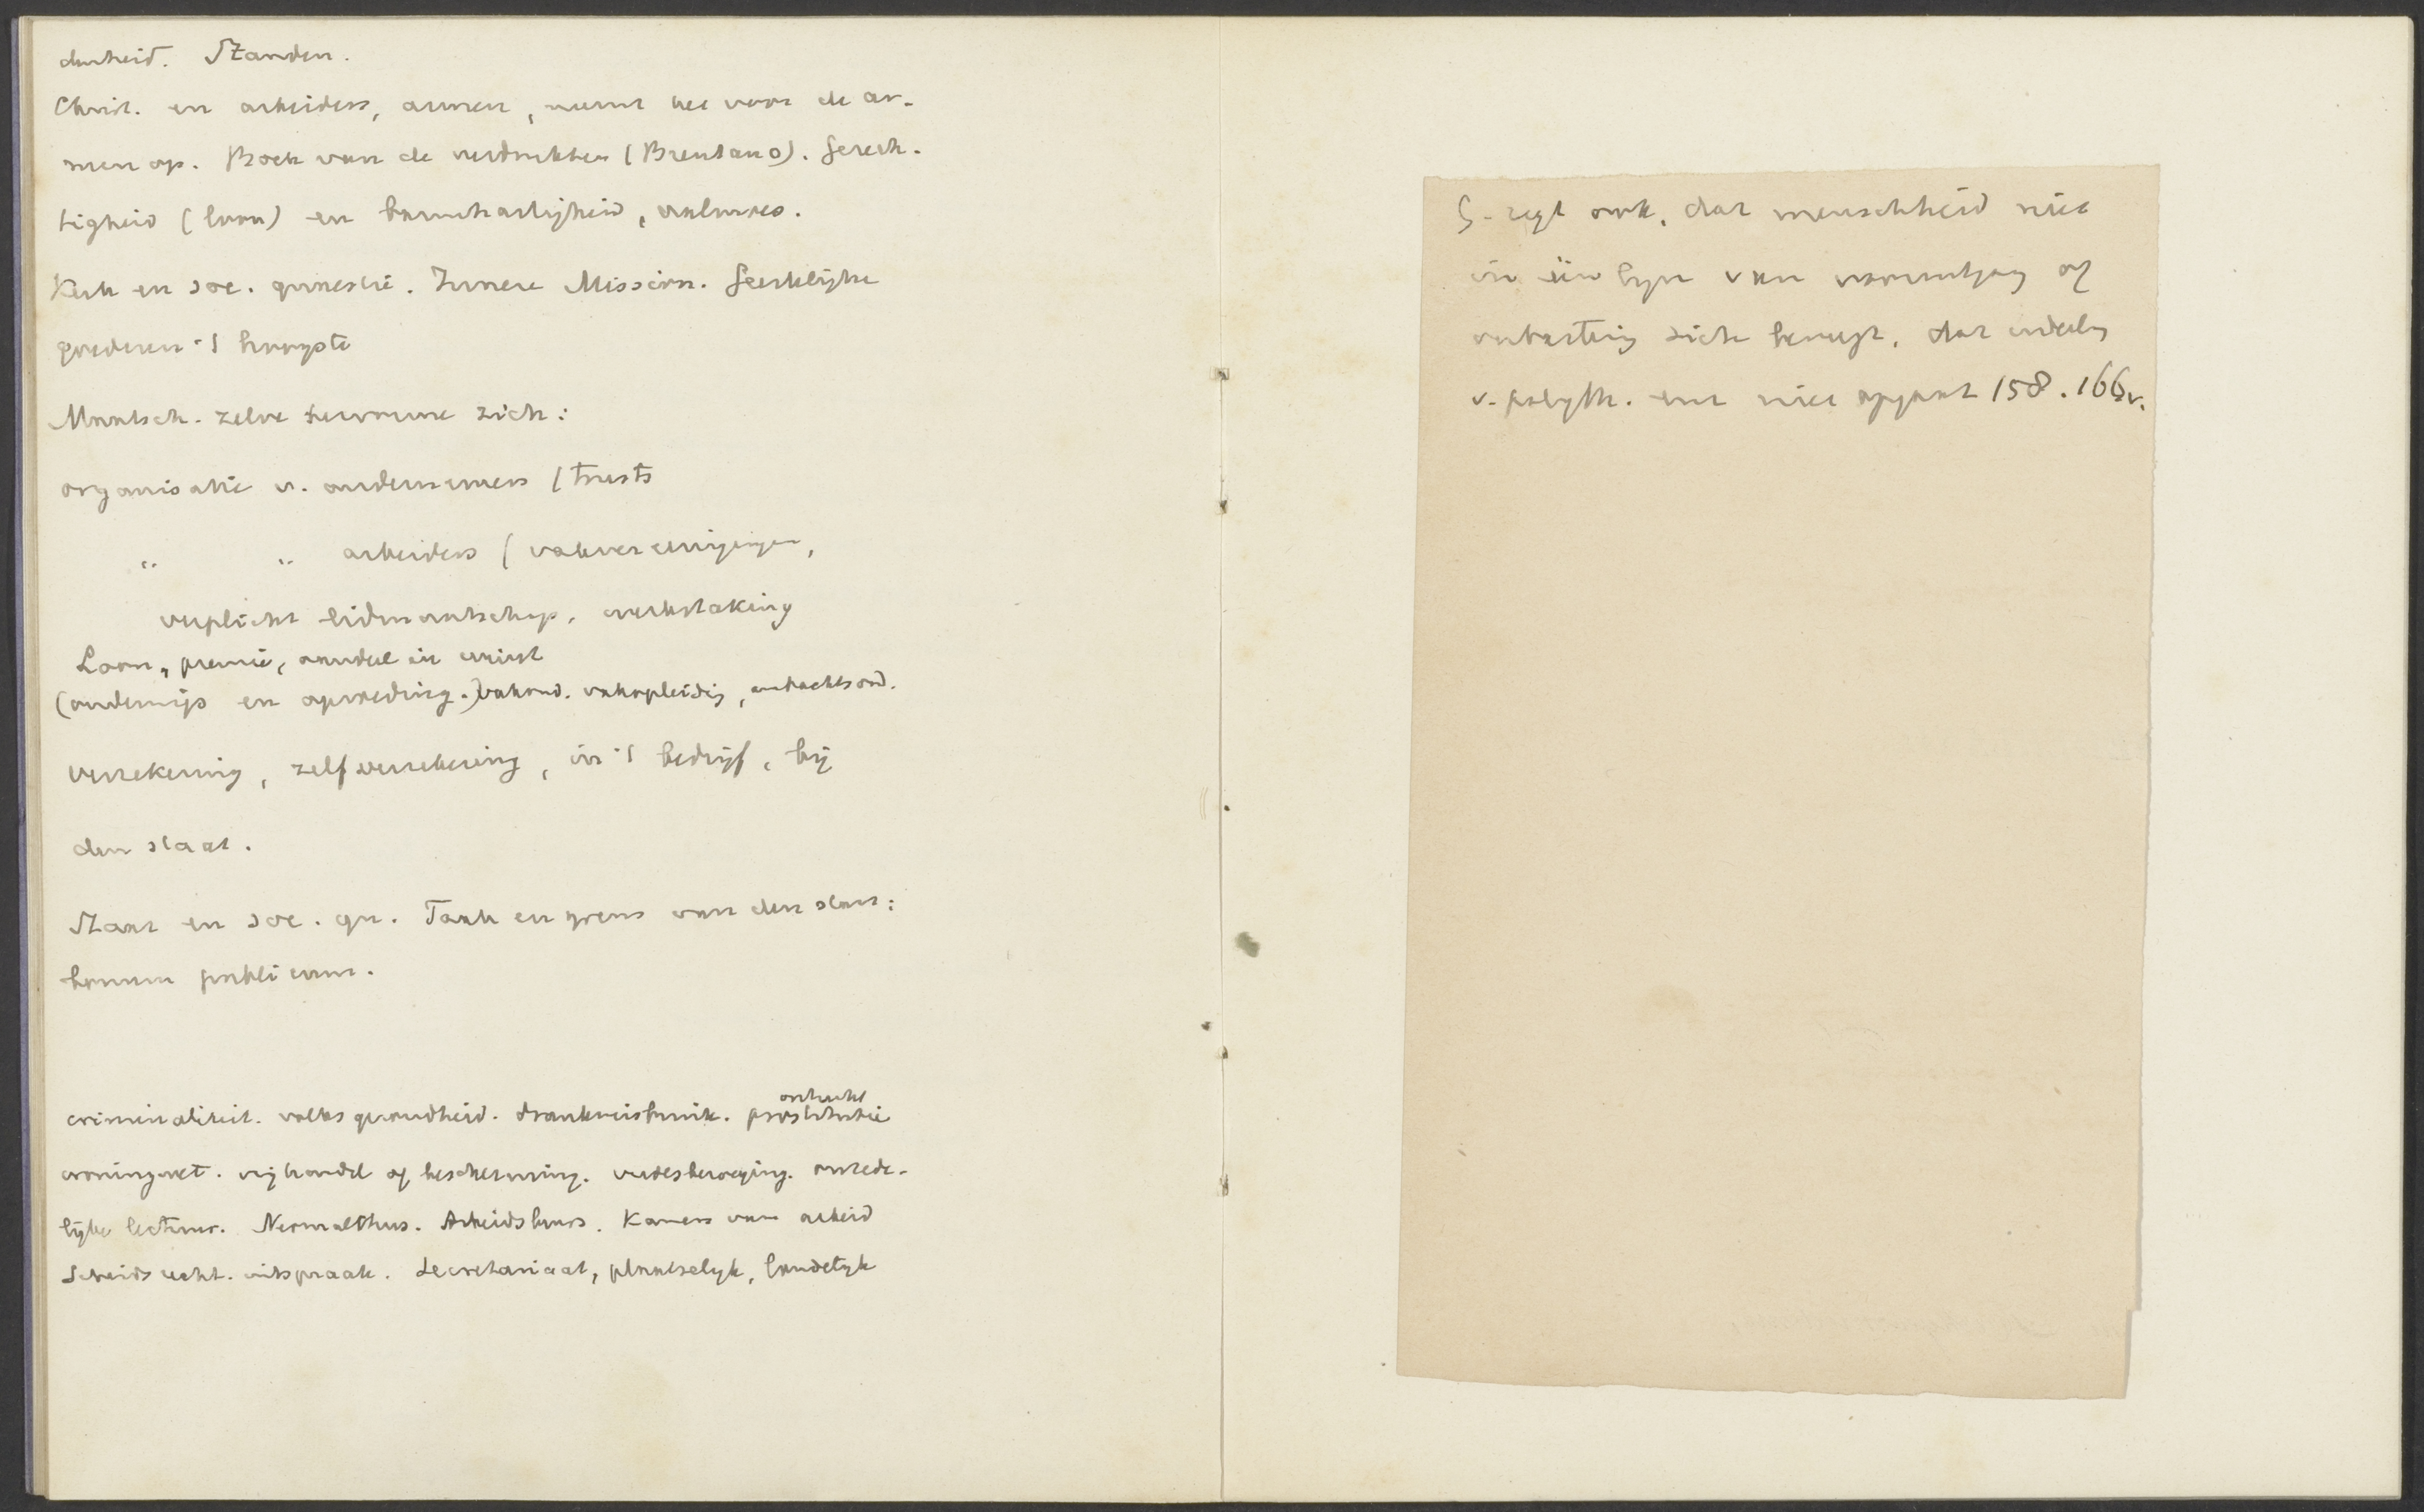 denheid. Standen.
Christ. en arbeiders, armen, neemt het voor de ar-
men op. Boek van de verdrukten (Brentano). Gerech-
tigheid (loon) en barmhartigheid, aalmoes.
Kerk en soc. quaestie. Innere Mission. Geestelijke
goederen 't hoogste
Maatsch. zelve hervorme zich:
organisatie v. ondernemers (trusts
" " arbeiders (vakvereenigingen,
verplicht lidmaatschap, werkstaking
Loon, premie, aandeel in winst
(onderwijs en opvoeding.) vakond. vakopleidig, ambachtsond.
verzekering, zelfverzekering, in 't bedrijf, bij
den staat.
Staat en soc. qu. Taak en grens van den staat:
bonum publicum.
ontucht
criminaliteit. volksgezondheid. drankmisbruik. prostitutie
woningwet. vrijhandel of bescherming. vredesbeweging. onzede-
lijke lectuur. Neomalthus. Arbeidsbeurs. Kamers van arbeid
Scheidsrecht. uitspraak. Secretariaat, plaatselijk, landelijk
G. zegt ook, dat menschheid niet
in één lijn van vooruitgang of
ontaarding zich beweegt, dat
v. polyth. niet opgaat 158. 166v.